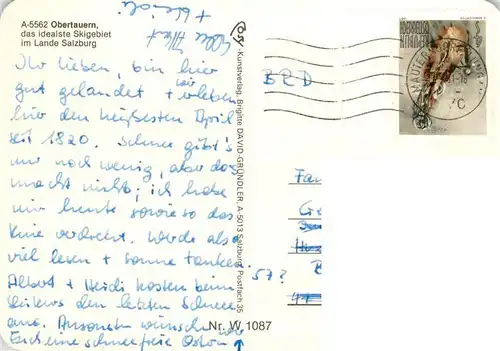 A-5562 Obertauern,
das idealste Skigebiet
im Lande Salzburg
Ihr lieben, bin hier
gut gelandet + erleben
hier den heißesten April
seit 1820. Schnee gibt's
nur noch wenig, aber das
macht nichts, ich habe
mir heute sowieso das
Knie verdreht. Werde also
viel lesen + Sonne tanken.
Albert + Heidi kosten beim
den letzten Schnee
aus. Ansonsten wünschen wir
Euch eine schneefreie Ostern
+ Heidi
Cosy - Kunstverlag, Brigitte DAVID-GRÜNDLER, A-5013 Salzburg, Postfach 35
Nr. W 1087
BRD
57?
REPUBLIK
ÖSTERREICH